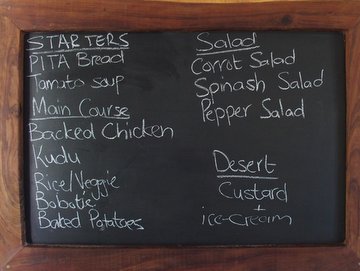 STARTERS
PITA Bread
Tomato soup
Main Course
Backed Chicken
Kudu
Rice/Veggie
Bobotie
Baked Potatoes
Salad
Corrot Salad
Spinash Salad
Pepper Salad
Desert
Custard
+
ice-cream